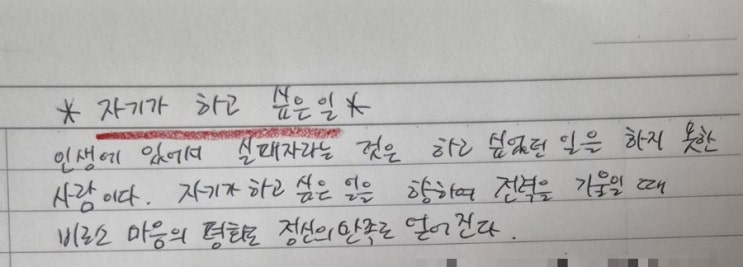 * 자기가 하고 싶은일 *
인생에 있어서 실패자라는 것은 하고 싶었던 일을 하지 못한
사람이다. 자기가 하고 싶은 일을 향하여 전력을 기울일 때
비로소 마음의 평화도 정신의 만족도 얻어진다.